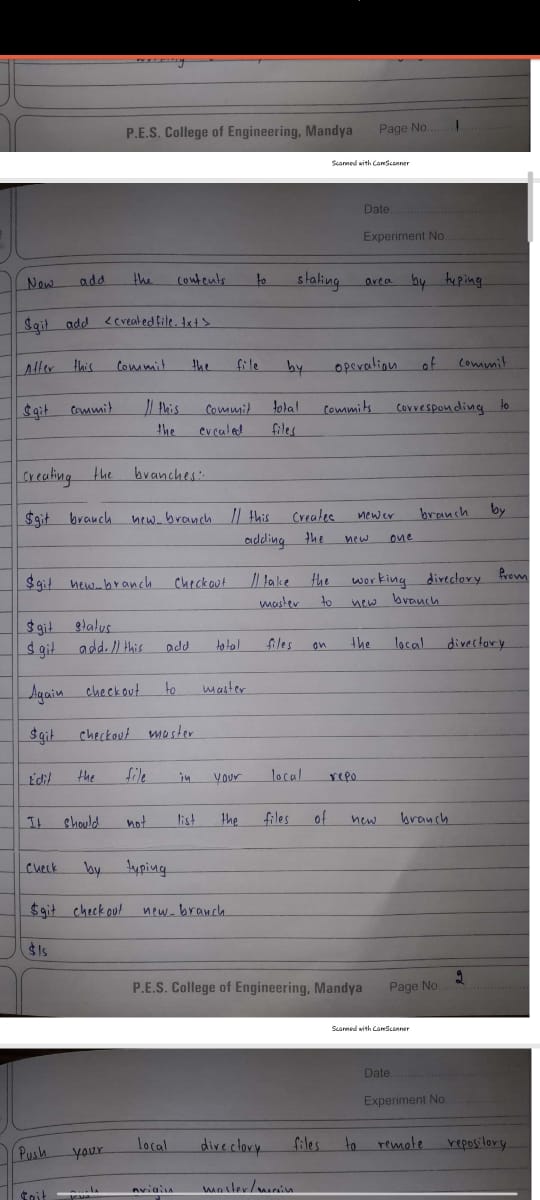 P.E.S. College of Engineering, Mandya Page No..... 1
Scanned with CamScanner
Date
Experiment No.
Now add the contents to stating area by typing
$git add <createdfile.txt>
After this Commit the file by operation of commit
$git commit // this commit total commits corresponding to
the created files
Creating the branches:-
$git branch new_branch // this Creates newer branch by
adding the new one
$git new_branch Checkout // take the working directory from
master to new branch
$git status
$git add. // this add total files on the local directory
Again checkout to master
$git checkout master
Edit the file in your local repo
It should not list the files of new branch
Check by typing
$git checkout new_branch
$ls
P.E.S. College of Engineering, Mandya Page No. 2
Scanned with CamScanner
Date
Experiment No.
Push your local directory files to remote repository
$git push origin master/main